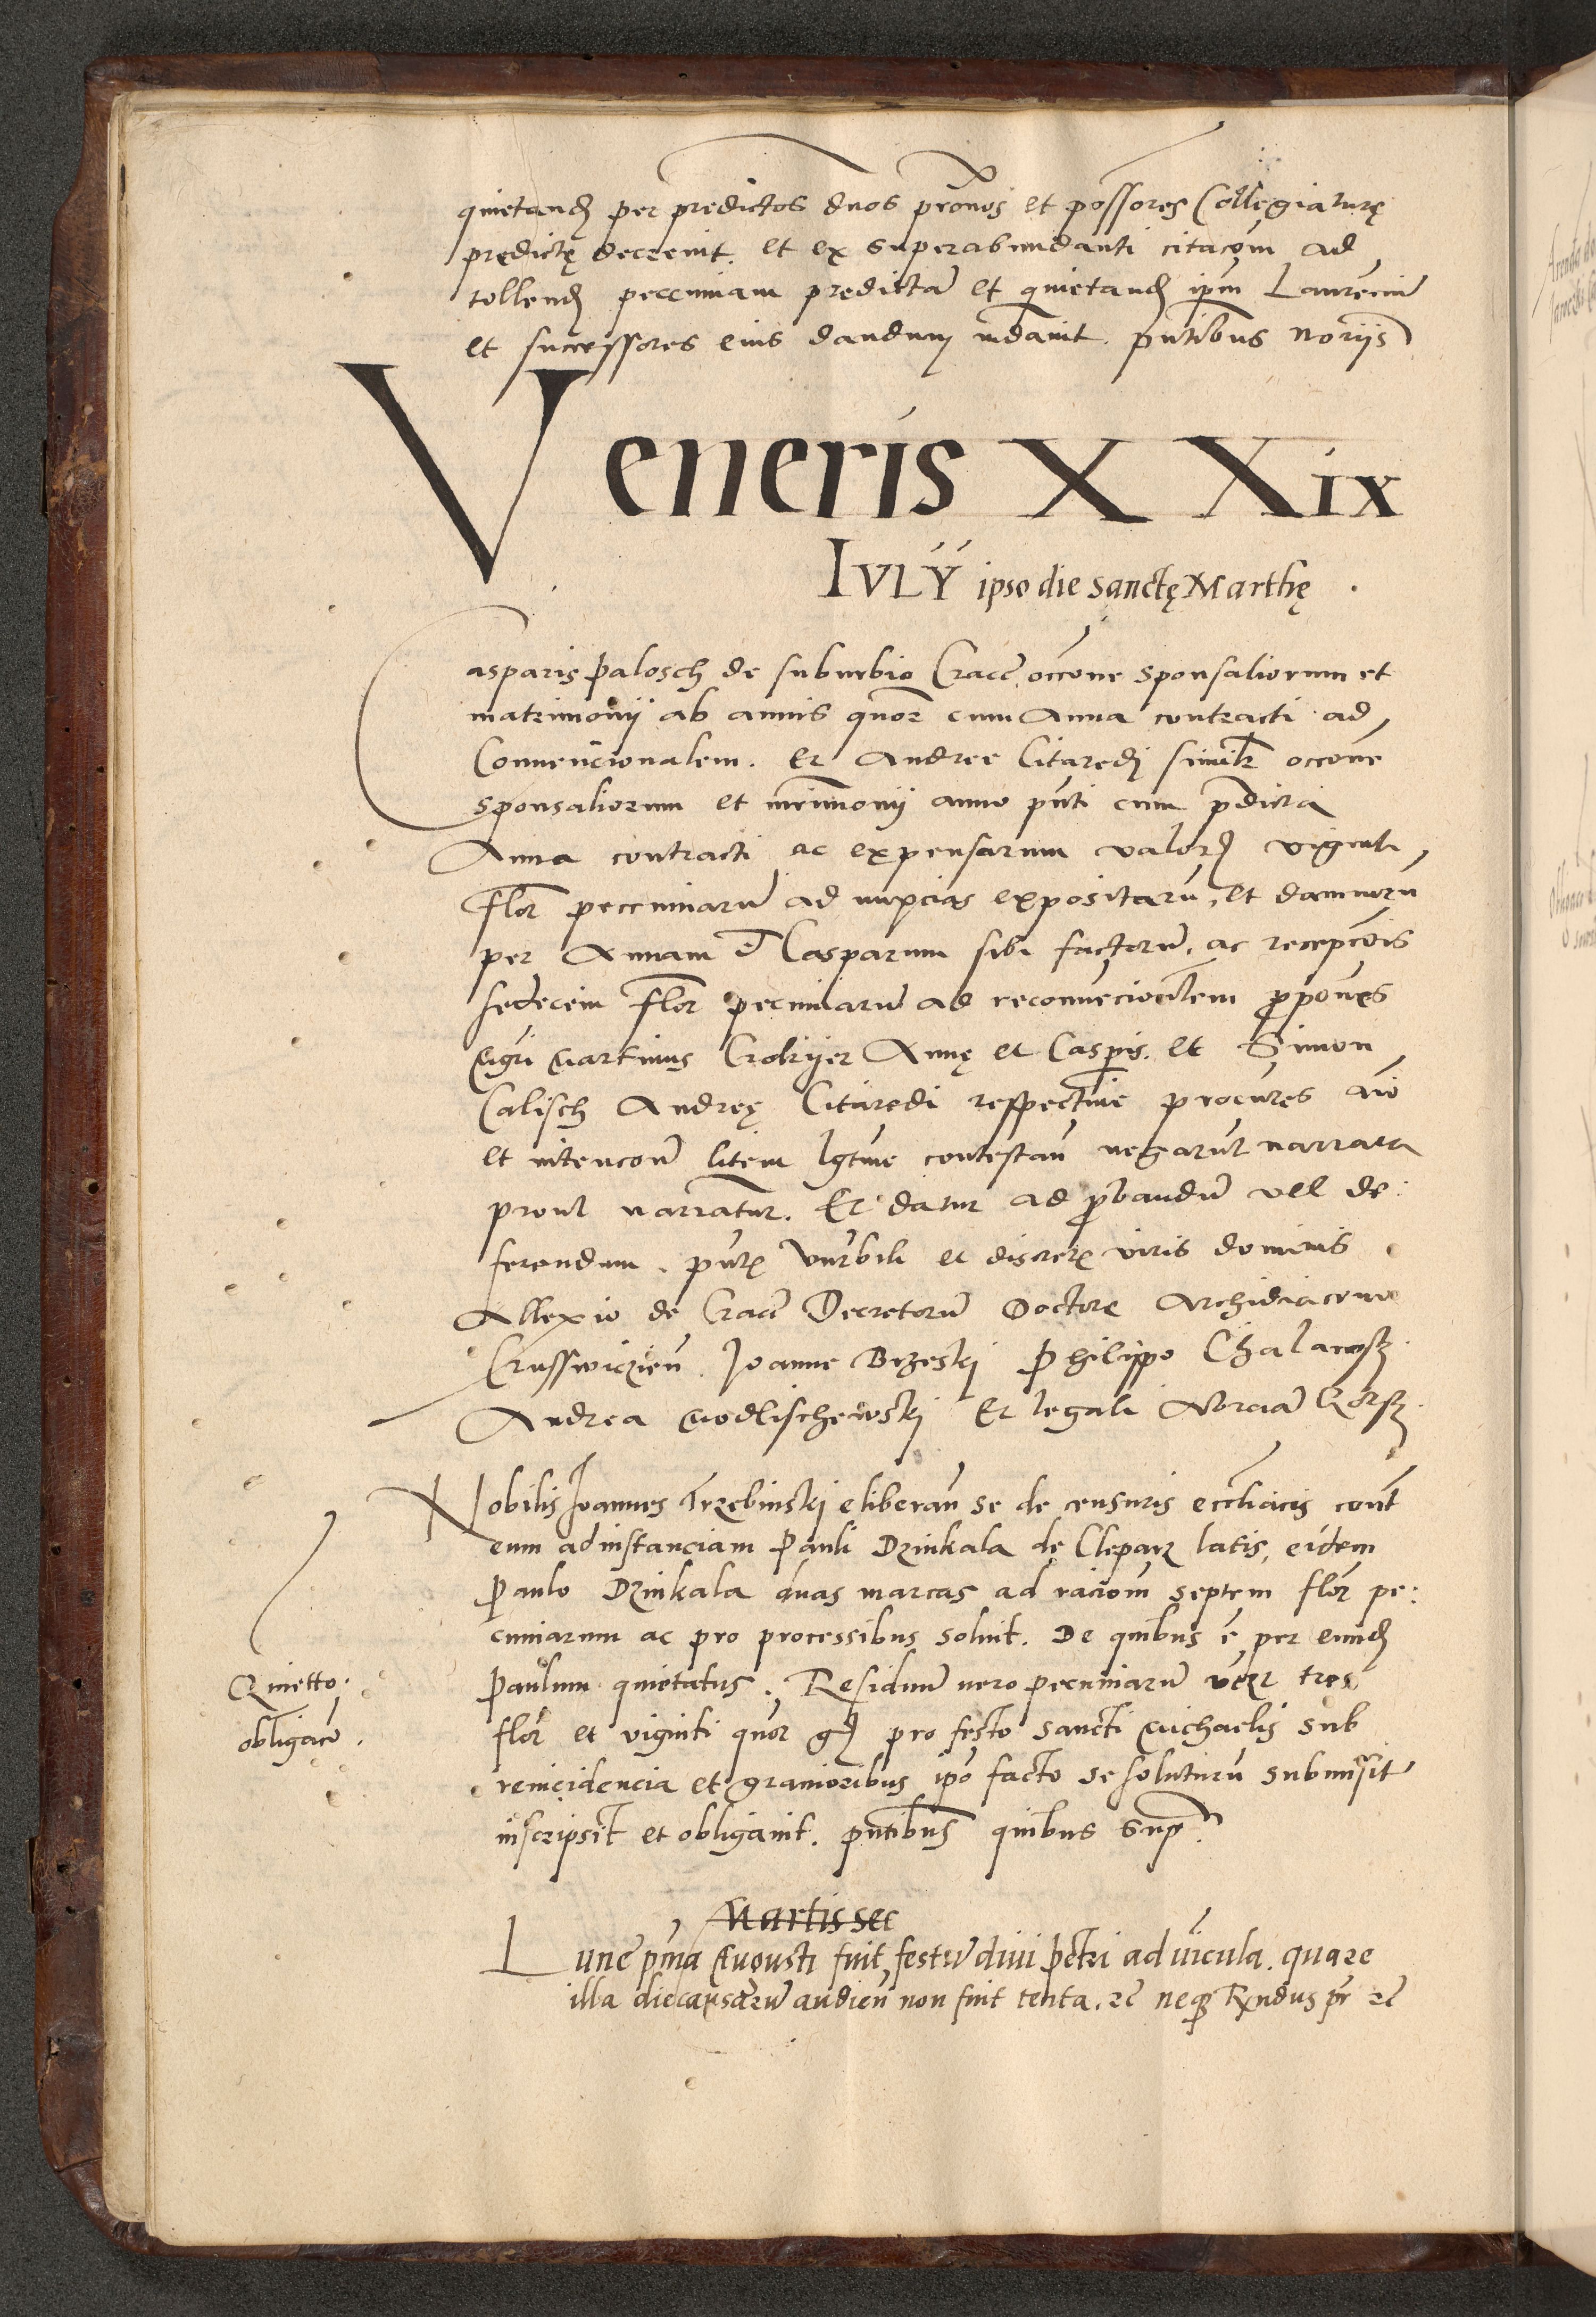 quietand per predictos dnos provos et possores Collegiaturę
predictę decrevit. et ex superabundanti citacom ad
tollend peccuniam predictā et quietand ipm Laurenciū
et successores eius dandum mdavit. pntibus Noriis
Veneris XXix
IVLY ipso die sanctę Marthę.
Casparis Palosch de suburbio Cracē occone sponsaliorum et
matrimonij ab annis quor cum Anna contracti ad
Convencionalem. Et Andree Citaredi similr occone
sponsaliorum et mrimonij anno pnti cum pdicta
Anna contracti ac expensarum valor viginti
flor peccuniarū ad nupcias expositarū, et damnorū
per Annam et Casparum sibi factorū. ac recepcois
sedecim flor pecuniarū ad reconvencionlem ppones
Mgri Martinus Crokyer Annę et Caspris. et Simon
Calisch Andreę Citaredi respective procures aio
et intencone litem lgtime contestan negarūt narrata
prout narrātur. Et datur ad pbandū vel de:
ferendum. pntę Vnrbili et discretę viris dominis
Allexio de Cracē Decretorū Doctore Archidiacono
Crusswiczien. Joanne Brzeskj Philippo Chalamsk
Andrea Modlischewskj Et legali Abraā Gorsk.
Nobilis Joannes Trzebinskj eliberan se de censuris ecctiacis cont
eum ad instanciam Pauli Dzinkala de Clepar latis, eidem
Paulo Dzinkala duas marcas ad raciom septem flor pe:
cuniarum ac pro processibus solvit. De quibus ē per eund
Paulum quietatus. Residuū vero pecuniarū videlz tres
flor et viginti quor gr pro festo sancti Michaelis sub
reincidencia et gravioribus ipo facto se soluturū submisit
inscripsit et obligavit. pntibus quibus supr
Quietto.
obligacio.
Martis sec
Lune pma Augusti fuit festū divi Petri ad vicula. quare
illa die causarū audien non fuit tenta. rc neqz Rndus pr rc